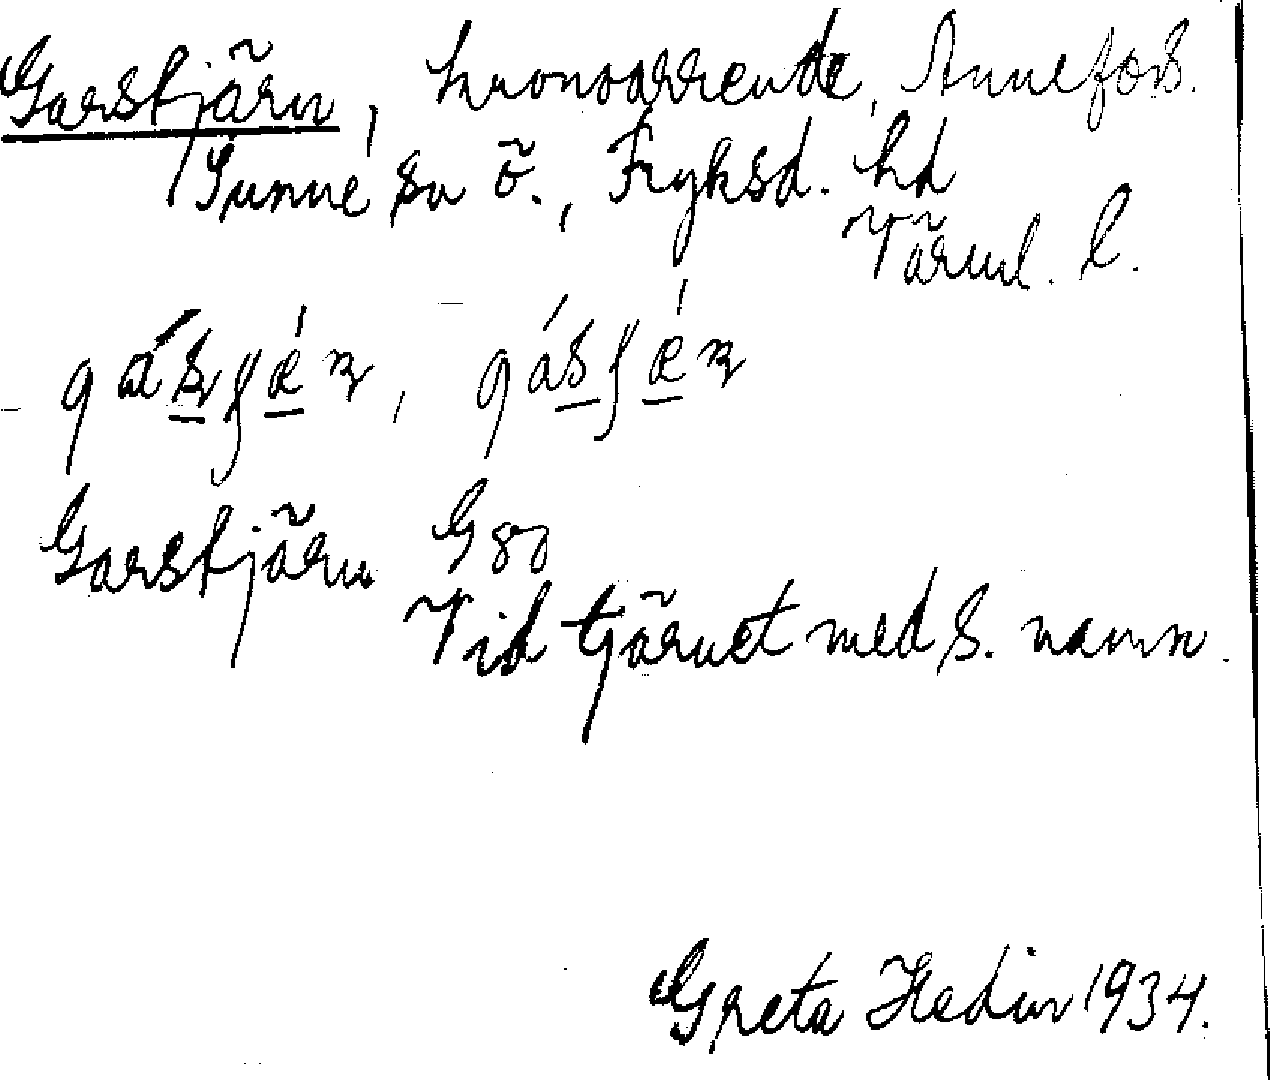 Garstjärn, kronoarrende, Annefors.
Sunne sn ö., Fryksd. hd
Värml. l.
Garstjärn G 80
Vid tjärnet med s. namn.
Greta Hedin 1934.